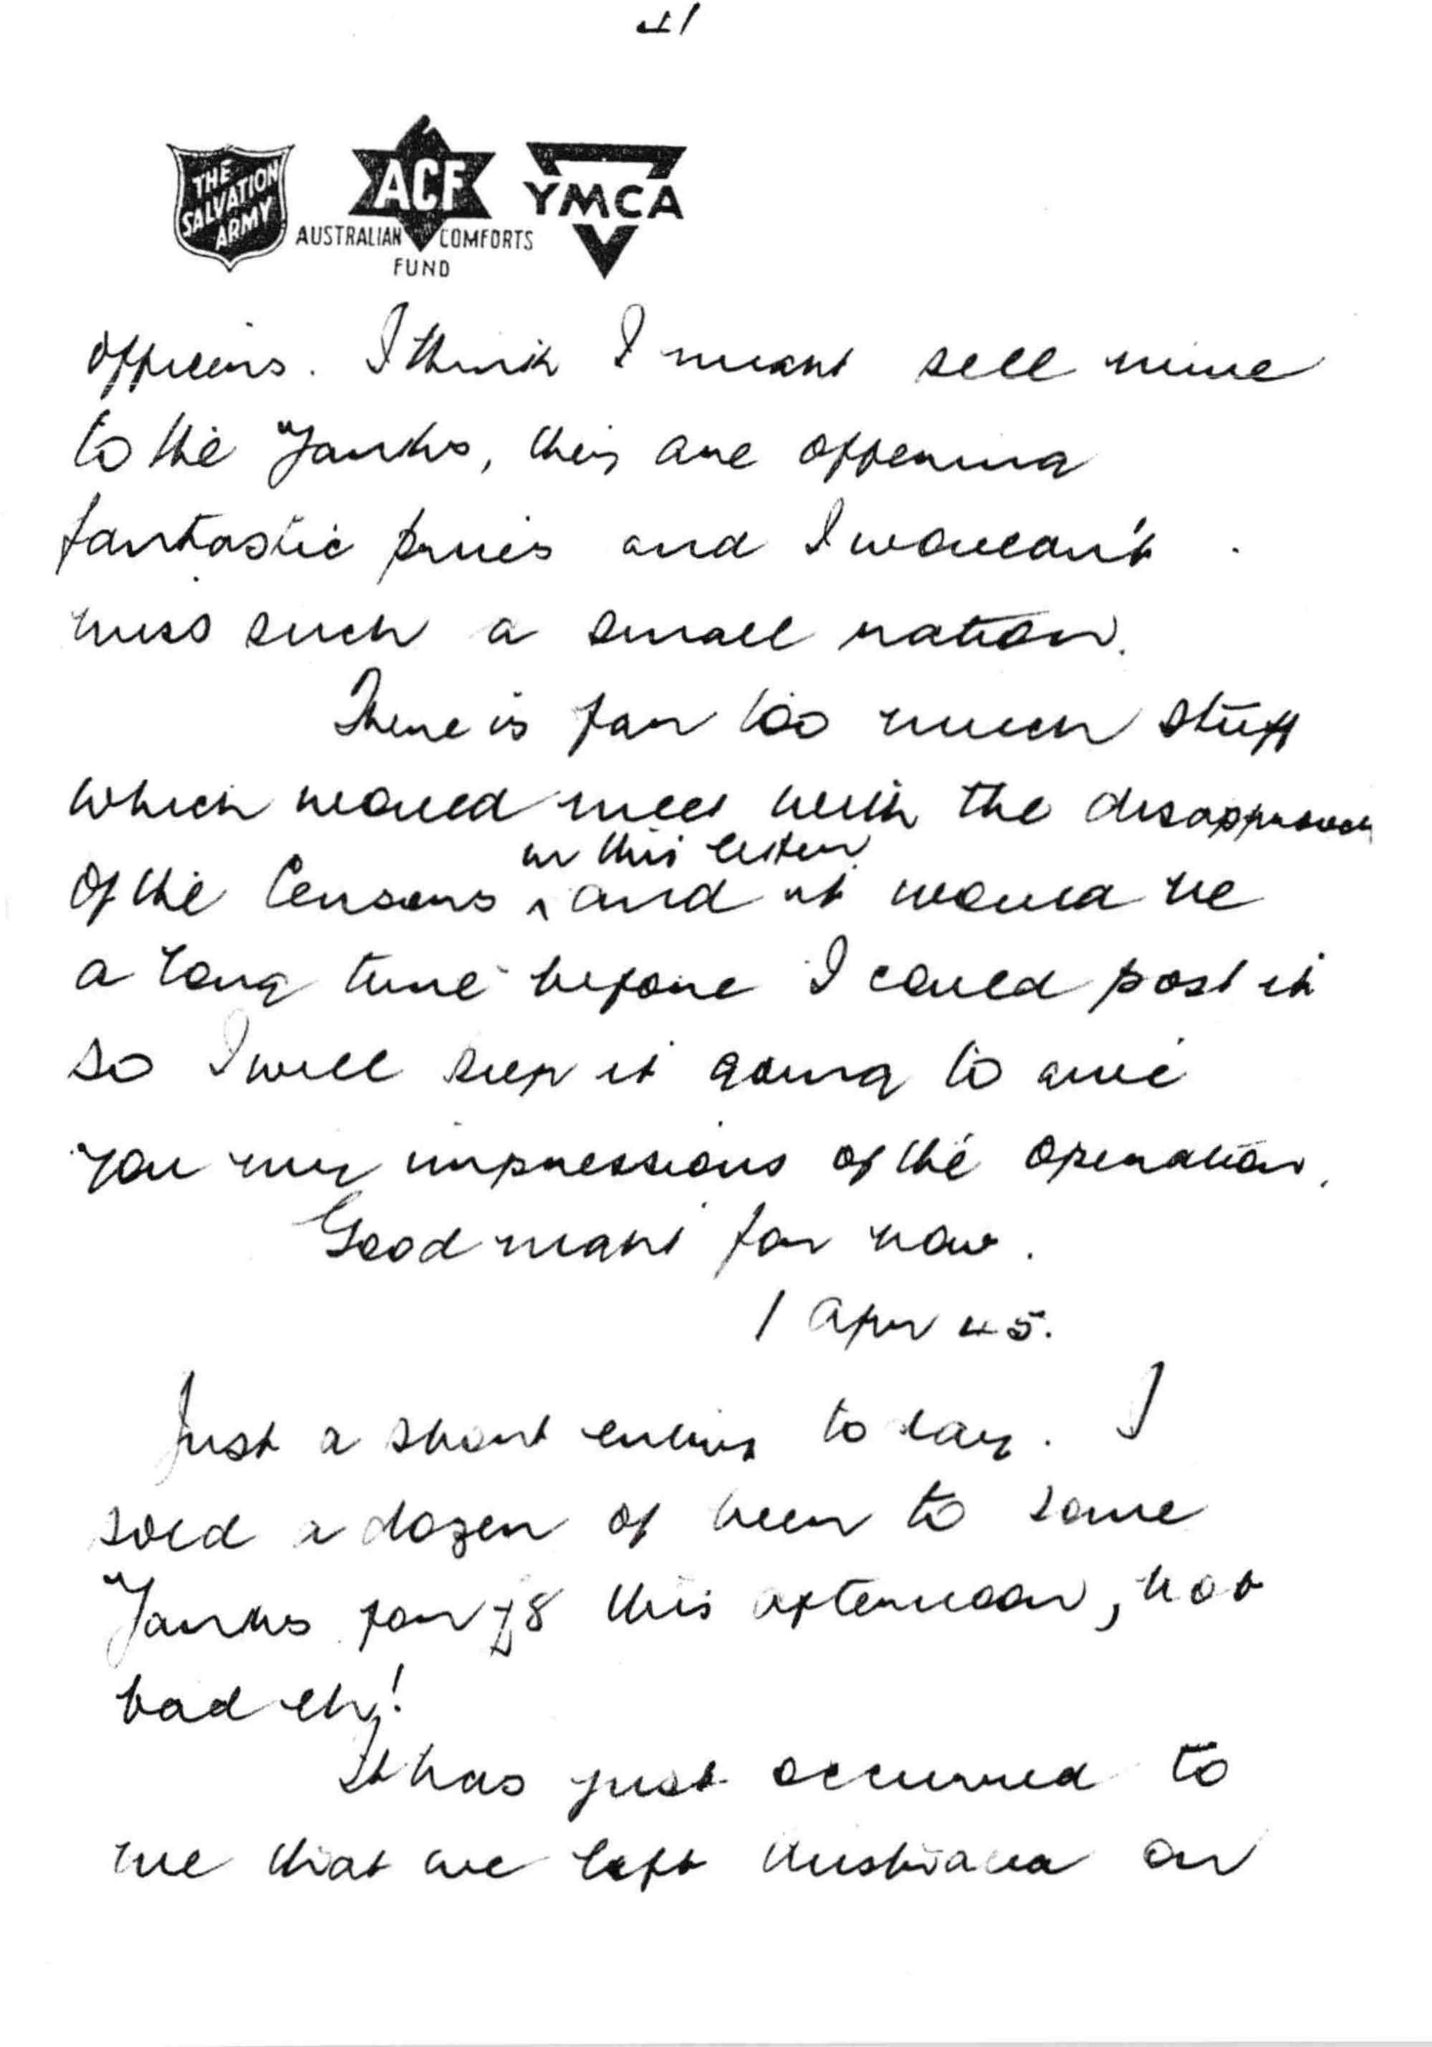 41
THE SALVATION ARMY
ACF
AUSTRALIAN COMFORTS FUND
YMCA
Officers. I think I might sell mine
to the Yanks, they are offering
fantastic prices and I wouldn't
miss such a small ration.
There is far too much stuff
which would meet with the disapproval
of the Censors in this letter and it would be
a long time before I could post it
so I will keep it going to give
you my impressions of the operation.
Good night for now.
1 Apr 45.
Just a short entry to day. I
sold a dozen of beer to some
Yanks for £8 this afternoon, not
bad eh!
It has just occurred to
me that we left Australia on